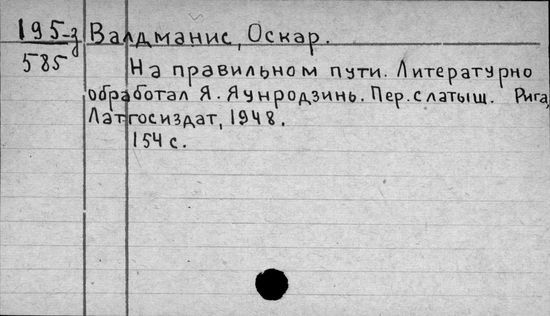 195-з Валдманис, Оскар.
585
На правильном пути. Литературно
обработал Я. Яунродзинь. Пер. с латыш. Рига,
Латгосиздат, 1948.
154 с.